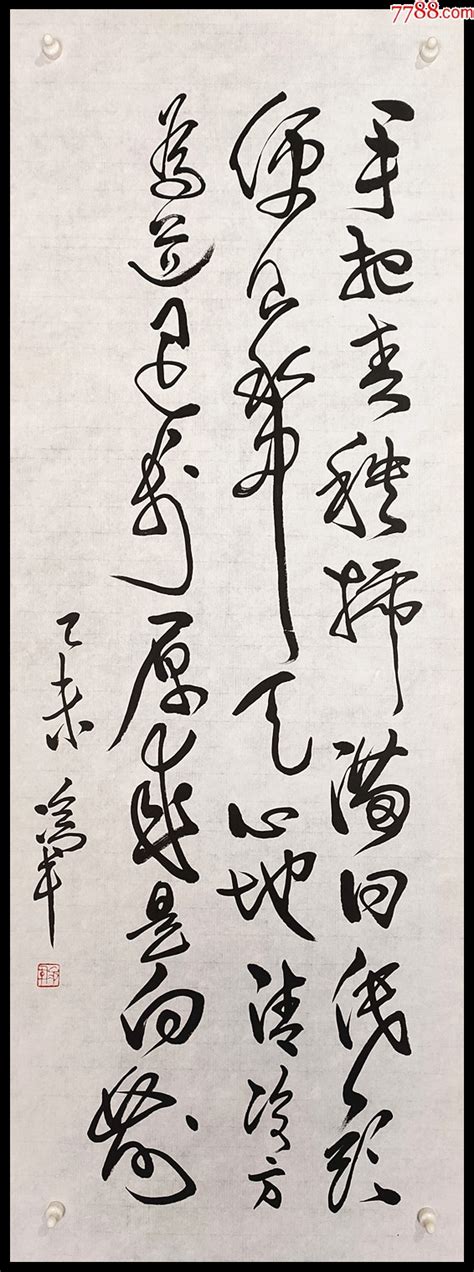 7788.com
手把青秧插满田低头
便见水中天心地清净方
为道退步原来是向前
乙未